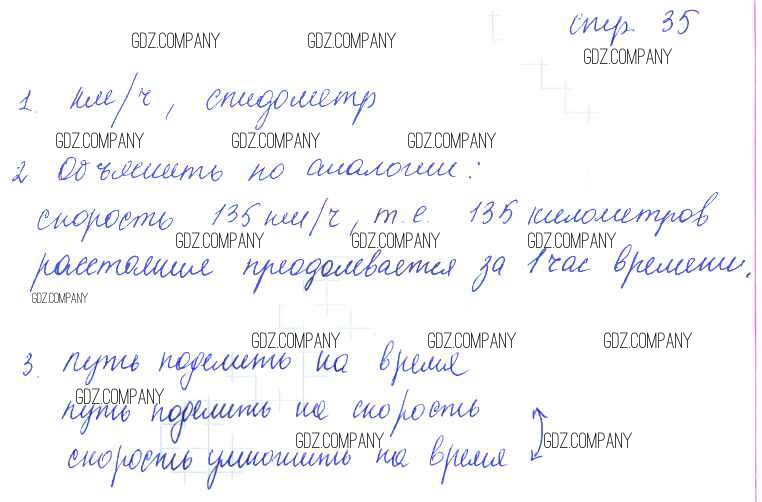 стр. 35
GDZ.COMPANY GDZ.COMPANY GDZ.COMPANY
1. км/ч, спидометр
GDZ.COMPANY GDZ.COMPANY GDZ.COMPANY
2. Объяснить по аналогии:
скорость 135 км/ч, т.е. 135 километров
GDZ.COMPANY GDZ.COMPANY GDZ.COMPANY
расстояния преодолевается за 1 час времени.
GDZ.COMPANY
GDZ.COMPANY GDZ.COMPANY GDZ.COMPANY
3. путь поделить на время
GDZ.COMPANY
путь поделить на скорость
GDZ.COMPANY GDZ.COMPANY
скорость умножить на время